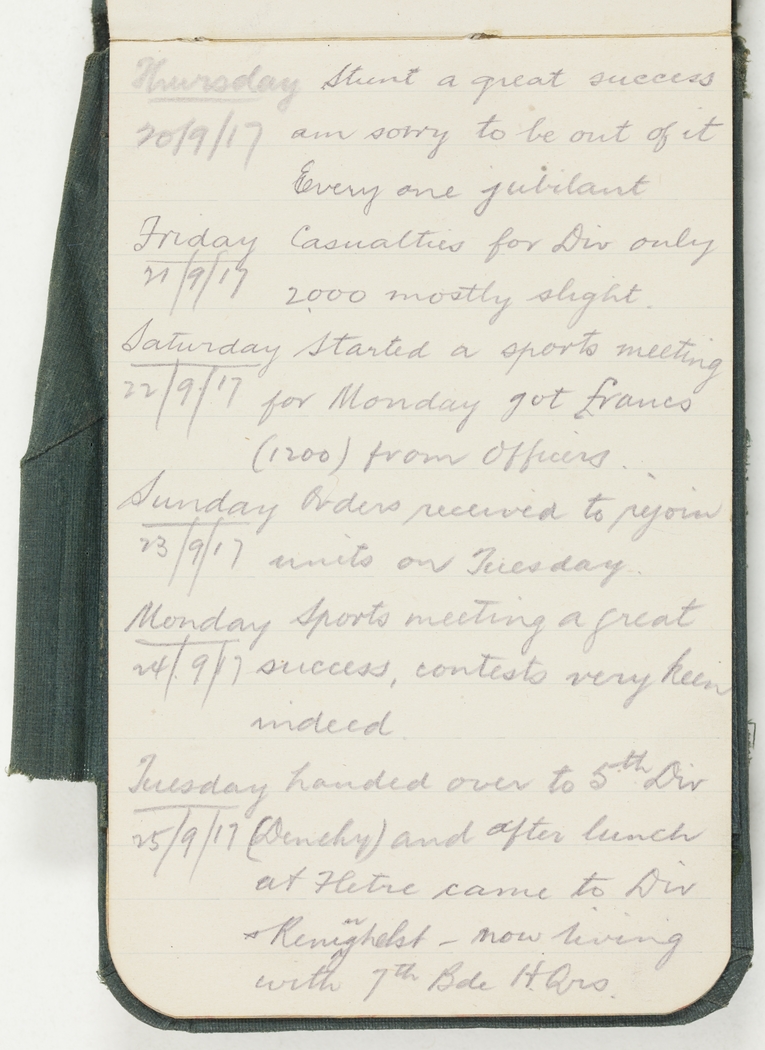 Thursday Stunt a great success
20/9/17 am sorry to be out of it
Every one jubilant
Friday Casualties for Div only
21/9/17 2000 mostly slight.
Saturday Started a sports meeting
22/9/17 for Monday got francs
(1200) from Officers.
Sunday Orders received to rejoin
23/9/17 units on Tuesday.
Monday Sports meeting a great
24/9/17 success, contests very keen
indeed.
Tuesday handed over to 5th Div
25/9/17 (Denehy) and after lunch
at Fletre came to Div
Renighelst - now living
with 7th Bde H. Qrs.